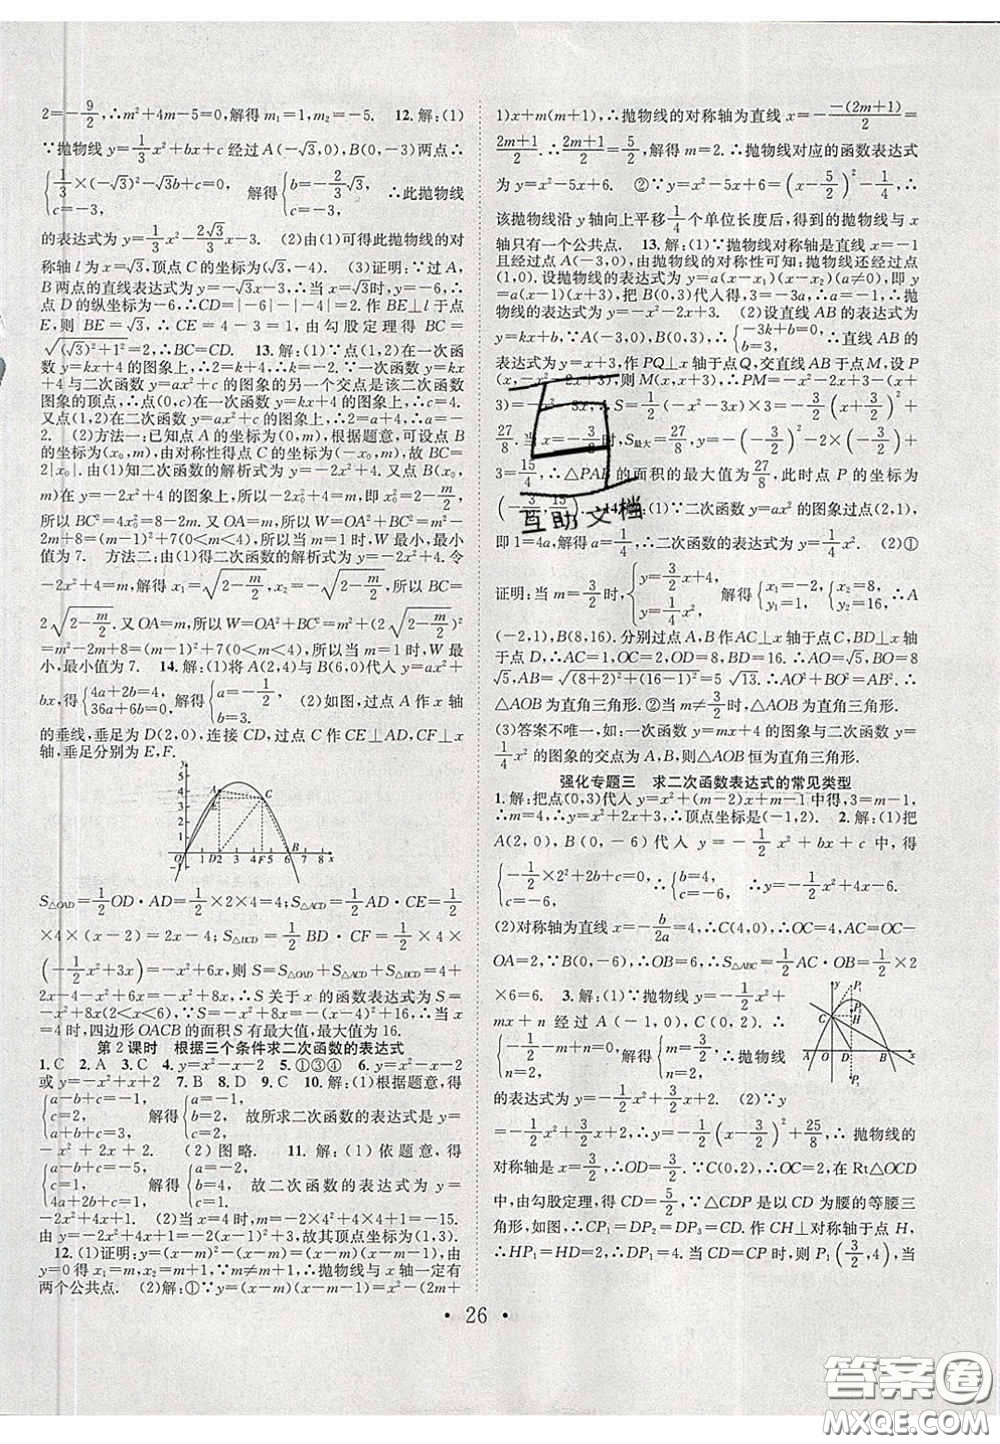 2=-9/2,∴m²+4m-5=0,解得 m₁=1,m₂=-5. 12.解:(1)
∵抛物线 y=1/3x²+bx+c 经过 A(-√3,0),B(0,-3)两点∴
{1/3×(-√3)²-√3b+c=0, c=-3, 解得{b=-2/3√3, c=-3, ∴此抛物线
的表达式为 y=1/3x²-2√3/3x-3. (2)由(1)可得此抛物线的对
称轴 l 为 x=√3,顶点 C 的坐标为(√3,-4). (3)证明:∵过 A、
B 两点的直线表达式为 y=-√3x-3,∴当 x=√3时,y=-6,∴
点 D 的纵坐标为-6,∴CD=|-6|-|-4|=2. 作 BE⊥l 于点
E,则 BE=√3,∴CE=4-3=1,由勾股定理得 BC=
√((√3)²+1²)=2,∴BC=CD. 13.解:(1)∵点(1,2)在一次函
数 y=kx+4 的图象上,∴2=k+4,∴k=-2. ∵一次函数 y=kx
+4 与二次函数 y=ax²+c 的图象的另一个交点是该二次函数
图象的顶点,∴点(0,c)在一次函数 y=kx+4 的图象上,∴c=4.
又点(1,2)在二次函数 y=ax²+c 的图象上,∴2=a+4,∴a=-
2. (2)方法一:已知点 A 的坐标为(0,m),根据题意,可设点 B
的坐标为(x₀,m),由对称性得点 C 的坐标为(-x₀,m),故 BC=
2|x₀|. 由(1)知二次函数的解析式为 y=-2x²+4,又点 B(x₀,
m)在 y=-2x²+4 的图象上,所以-2x₀²+4=m,即 x₀²=2-m/2,
所以 BC²=4x₀²=8-2m. 又 OA=m,所以 W=OA²+BC²=m²-
2m+8=(m-1)²+7(0<m<4),所以当 m=1 时,W 最小,最小
值为 7. 方法二:由(1)得二次函数的解析式为 y=-2x²+4. 令
-2x²+4=m,解得 x₁=√(2-m/2),x₂=-√(2-m/2),所以 BC=
2√(2-m/2). 又 OA=m,所以 W=OA²+BC²=m²+4(2-m/2)=
m²-2m+8=(m-1)²+7(0<m<4),所以当 m=1 时,W 最
小,最小值为 7. 14.解:(1)将 A(2,4)与 B(6,0)代入 y=ax²+
bx,得{4a+2b=4, 36a+6b=0, 解得{a=-1/2, b=3. (2)如图,过点 A 作 x 轴
的垂线,垂足为 D(2,0),连接 CD,过点 C 作 CE⊥AD,CF⊥x
轴,垂足分别为 E,F.
y
6
5
4
3
2
1
-1
A
E
C
O 1 D2 3 4 F5 6 B 7 8 x
S△OAD=1/2OD·AD=1/2×2×4=4;S△ACD=1/2AD·CE=1/2
×4×(x-2)=2x-4;S△BCD=1/2BD·CF=1/2×4×
(-1/2x²+3x)=-x²+6x,则 S=S△OAD+S△ACD+S△BCD=4+
2x-4-x²+6x=-x²+8x,∴S 关于 x 的函数表达式为 S=
-x²+8x(2<x<6),∵S=-x²+8x=-(x-4)²+16,∴当 x
=4 时,四边形 OACB 的面积 S 有最大值,最大值为 16.
第 2 课时 根据三个条件求二次函数的表达式
1.C 2.A 3.C 4.y=x²-x-2 5.①③④ 6.y=x²-x-2
或 y=-x²+x+2 7.B 8.D 9.C 10.解:(1)根据题意,得
{a-b+c=-1, c=2, a+b+c=3, 解得{a=-1, b=2, c=2, 故所求二次函数的表达式是 y=
-x²+2x+2. (2)图略. 11.解:(1)依题意,得
{a-b+c=-5, c=1, 4a+2b+c=1, 解得{a=-2, b=4, c=1, 故二次函数的表达式为 y=
-2x²+4x+1. (2)当 x=4 时,m=-2×4²+4×4+1=-15.
由 y=-2x²+4x+1=-2(x-1)²+3,故其顶点坐标为(1,3).
12.(1)证明:y=(x-m)²-(x-m)=(x-m)(x-m-1),由
y=0 得 x₁=m,x₂=m+1,∵m≠m+1,∴抛物线与 x 轴一定有
两个公共点. (2)解:①∵y=(x-m)(x-m-1)=x²-(2m+
1)x+m(m+1),∴抛物线的对称轴为直线 x=-(-(2m+1))/2=
(2m+1)/2=5/2,解得 m=2. ∴抛物线对应的函数表达式
为 y=x²-5x+6. ②∵y=x²-5x+6=(x-5/2)²-1/4,∴
该抛物线沿 y 轴向上平移1/4个单位长度后,得到的抛物线与 x
轴只有一个公共点. 13.解:(1)∵抛物线对称轴是直线 x=-1
且经过点 A(-3,0),由抛物线的对称性可知:抛物线还经过点
(1,0). 设抛物线的表达式为 y=a(x-x₁)(x-x₂)(a≠0),即 y
=a(x-1)(x+3),把 B(0,3)代入得,3=-3a,∴a=-1,∴抛
物线的表达式为 y=-x²-2x+3. (2)设直线 AB 的表达式为 y
=kx+b,∵A(-3,0),B(0,3),∴{-3k+b=0, b=3, ∴直线 AB 的
表达式为 y=x+3,作 PQ⊥x 轴于点 Q,交直线 AB 于点 M,设 P
(x,-x²-2x+3),则 M(x,x+3),∴PM=-x²-2x+3-(x+
3)=-x²-3x,∴S=1/2(-x²-3x)×3=-3/2(x+3/2)²+
27/8. 当 x=-3/2时,S最大=27/8,y=-(-3/2)²-2×(-3/2)+
3=15/4,∴△PAB 的面积的最大值为27/8,此时点 P 的坐标为
(-3/2,15/4). 14.解:(1)∵二次函数 y=ax² 的图象过点(2,1),
即 1=4a,解得 a=1/4,∴二次函数的表达式为 y=1/4x². (2)①
证明:当 m=3/2时,{y=3/2x+4, y=1/4x², 解得{x₁=-2, y₁=1, {x₂=8, y₂=16, ∴A
(-2,1),B(8,16). 分别过点 A,B 作 AC⊥x 轴于点 C,BD⊥x 轴
于点 D,∴AC=1,OC=2,OD=8,BD=16. ∴AO=√5,BO=8
√5,AB=√((8+2)²+(16-1)²)=5√13. ∴AO²+BO²=AB². ∴
△AOB 为直角三角形. ②当 m≠3/2时,△AOB 为直角三角形.
(3)答案不唯一,如:一次函数 y=mx+4 的图象与二次函数 y=
1/4x² 的图象的交点为 A,B,则△AOB 恒为直角三角形.
强化专题三 求二次函数表达式的常见类型
1.解:把点(0,3)代入 y=x²+(m-2)x+m-1 中得,3=m-1,
∴m=4,∴y=x²+2x+3,∴顶点坐标是(-1,2). 2.解:(1)把
A(2,0),B(0,-6)代入 y=-1/2x²+bx+c 中,得
{-1/2×2²+2b+c=0, c=-6, ∴{b=4, c=-6, ∴y=-1/2x²+4x-6.
(2)对称轴为直线 x=-b/2a=4,∴C(4,0),∴OC=4,AC=OC-
OA=2,∵B(0,-6),∴OB=6,∴S△ABC=1/2AC·OB=1/2×2
×6=6. 3.解:(1)∵抛物线 y=-1/2x²+
mx+n 经过点 A(-1,0),C(0,2),∴
{-1/2-m+n=0, n=2, 解得{m=3/2, n=2, ∴抛物线
y P₁
P₃
C H
A O D B x
P₂
的表达式为 y=-1/2x²+3/2x+2. (2)∵y
=-1/2x²+3/2x+2,∴y=-1/2(x-3/2)²+25/8,∴抛物线的
对称轴是 x=3/2,∴OD=3/2. ∵C(0,2),∴OC=2,在 Rt△OCD
中,由勾股定理,得 CD=5/2,∵△CDP 是以 CD 为腰的等腰三
角形,如图,∴CP₁=DP₂=DP₃=CD. 作 CH⊥对称轴于点 H,
∴HP₁=HD=2,∴DP₁=4. 当 CD=CP 时,则 P₁(3/2,4),当
· 26 ·
互助文档
答案圈
MXQE.COM